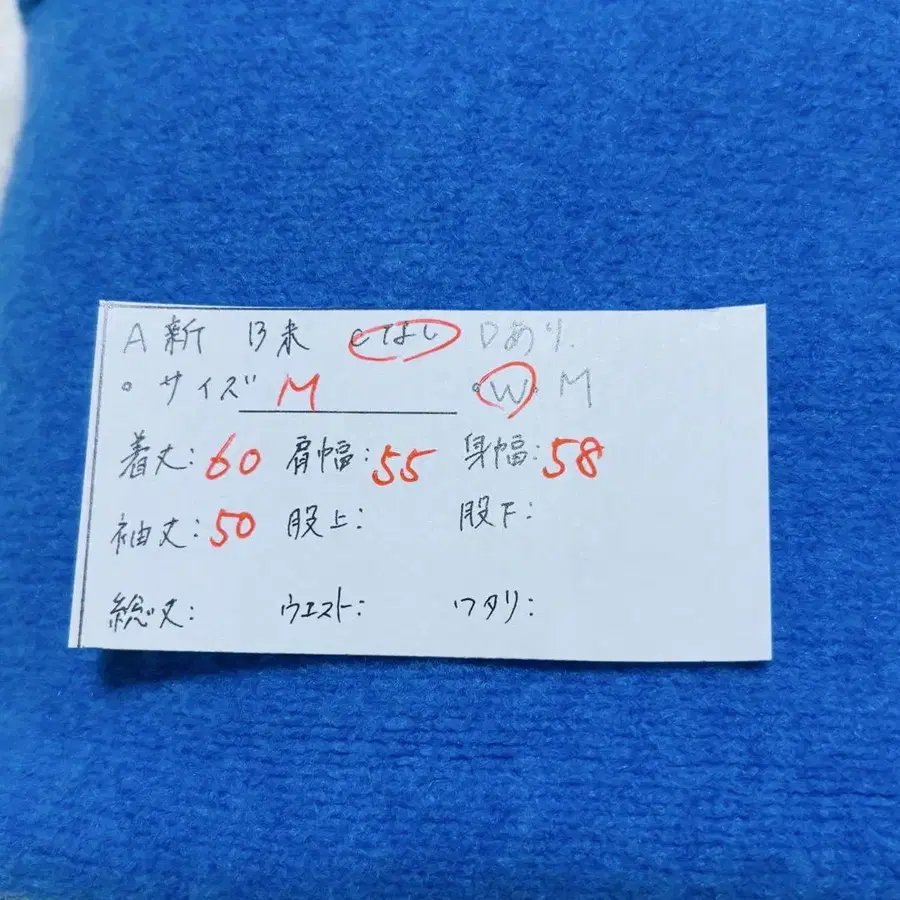 A 新 B未 Cなし Dあり.
。サイズ M 。W。M
着丈:60 肩幅:55 身幅:58
袖丈:50 股上: 股下:
総丈: ウエスト: ワタリ: